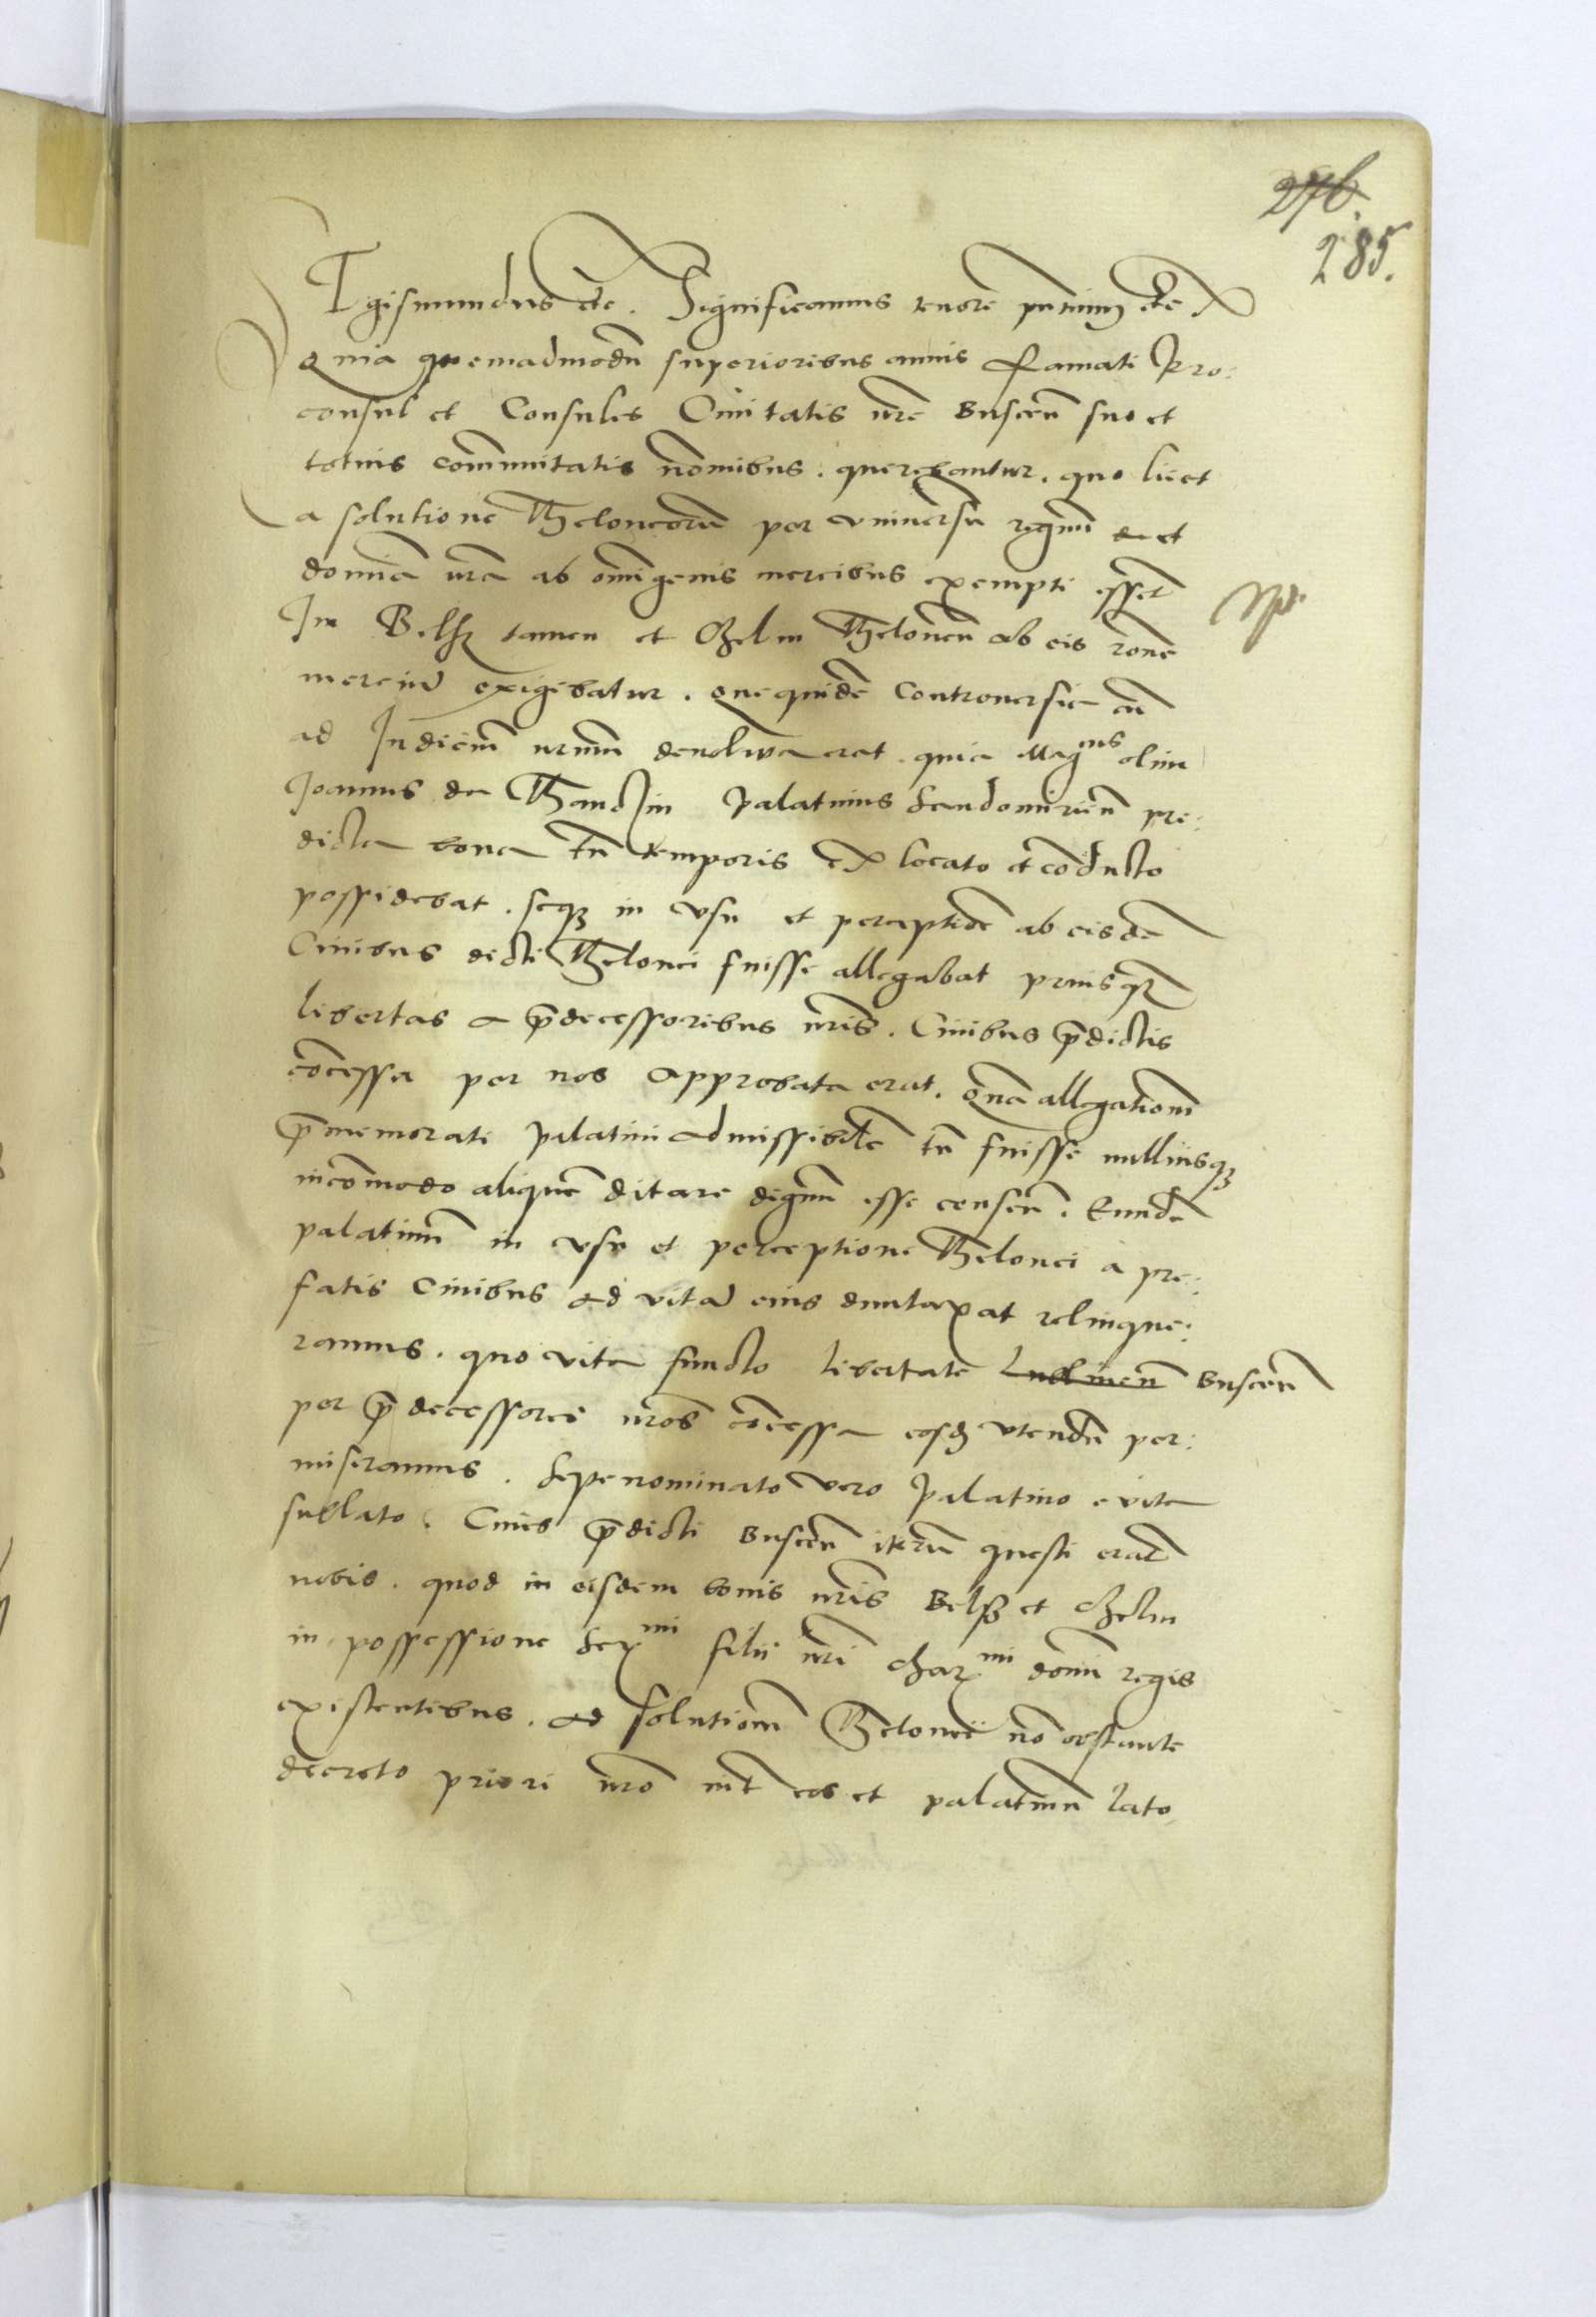 276.
285.
Sigismundus etc. Significamus tenore pntium etc
Quia quemadmodu superioribus annis famati Pro:
consul et Consules Ciuitatis nre Buscen suo et
totius communitatis nomibus. querebantur. quo licet
a solutione Theloneoru per vniuersu regnu et
domia nra ab omigenis mercibus exempti essent
In Belsz tamen et Chelm Theloneu ab eis rone
merciu exigebatur. que quide controuersia cu
ad Iudiciu nrum deuoluta erat. quia Mag^cus olim
Joannes de Thanczin palatinus Sandomirien pre:
dicta bona tu temporis ex locato et conducto
possidebat. seqz in vsu et perceptioe ab eisde
Ciuibus dicti Thelonei fuisse allegabat priusqz
libertas a predecessoribus nris. Ciuibus predictis
concessa per nos approbata erat. qua allegationem
prememorati palatini admissibile tu fuisse nulliusqz
incommodo aliquem ditare dignum esse censen. Eunde
palatinum in vsu et perceptione Thelonei a pre:
fatis Ciuibus ad vitam eius duntaxat relinque:
ramus. quo vita functo libertate Lublinen Buscen
per predecessores nros concessa eosd vtendu per:
miseramus. Sepenominato vero palatino e vita
sublato. Ciues predicti Buscen iteru questi erant
nobis. quod in eisdem bonis nris Belsz et Chelm
in possessione Ser^mi filii nri char^mi domi regis
existentibus. ad solutionem Thelonei no obstante
decreto priori nro int eos et palatinum lato